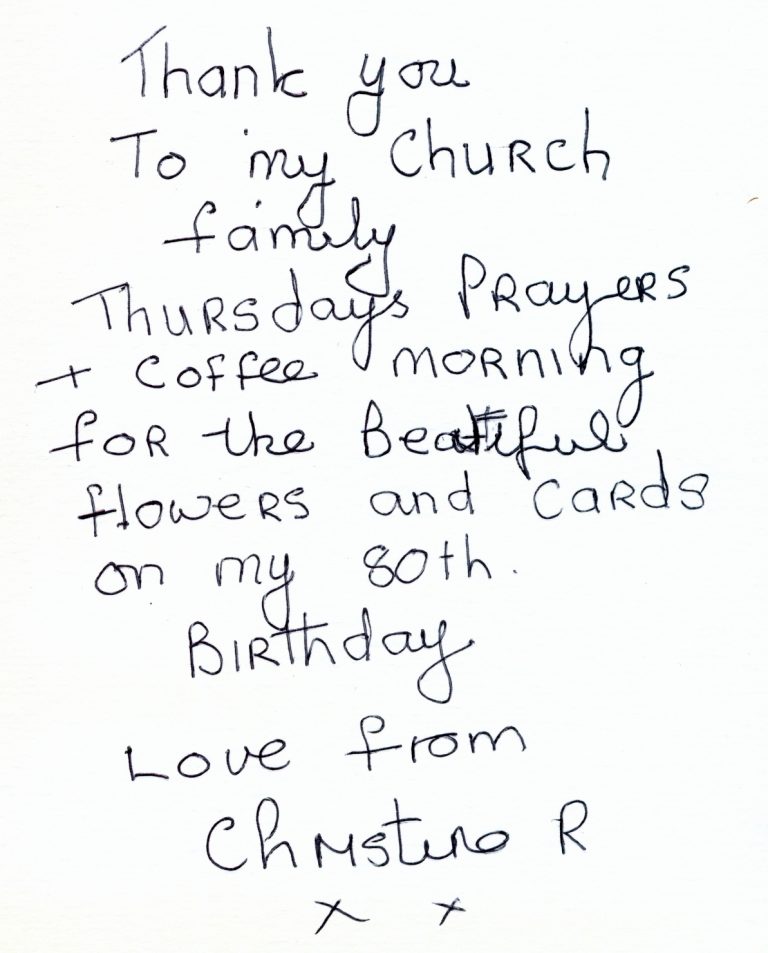 Thank you
To my Church
family
Thursdays Prayers
+ Coffee morning
for the Beatiful
flowers and Cards
on my 80th.
Birthday
Love from
Christine R
x x